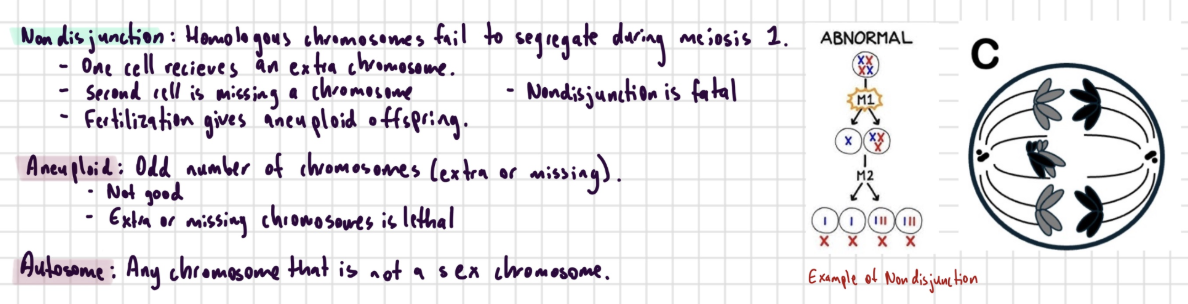 Nondisjunction: Homologous chromosomes fail to segregate during meiosis 1.
- One cell recieves an extra chromosome.
- Second cell is missing a chromosome
- Nondisjunction is fatal
- Fertilization gives aneuploid offspring.
Aneuploid: Odd number of chromosomes (extra or missing).
- Not good
- Extra or missing chromosomes is lethal
Autosome: Any chromosome that is not a sex chromosome.
ABNORMAL
XX
XX
M1
X XX
XX
M2
I I III III
X X X X
Example of Nondisjunction
C